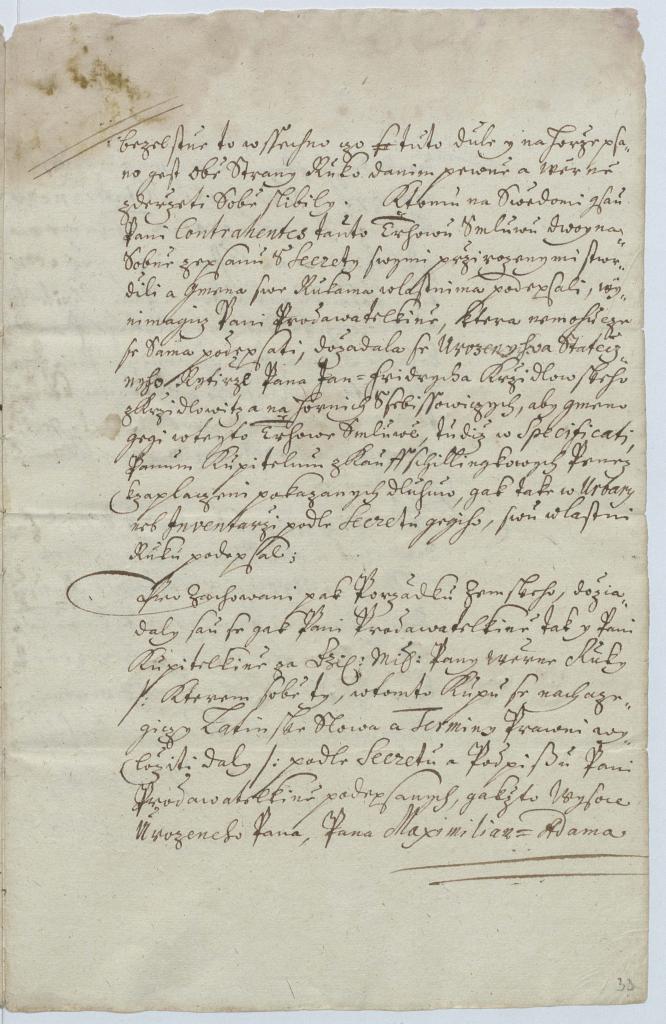 bezelstne to wssechno czo se tuto dule y na horzepsa„
no gest obě Strany Ruko danim pewně a wěrně
zderzeti Sobě slibily. Ktomu na Swědomi gsau
Pani Contrahentes tauto Trhowu Smluwu dwogna„
Sobně zepsanu S Secrety swymi przirozenymi stwr„
dili a Gmena swe Rukama wlastnima podepsali, wy„
nimagicz Pani Prodawatelkině, ktera nemohucze
se Sama podepsati, dozadala se Urozenyho a Statecz„
nyho Rytirze Pana Jan=Fridrycha Krzidlowskeho
z Krzidlowitz a na Hornich Ssebissowiczych, aby gmeno
gegi w teyto Trhowe Smluwě, tudiz w Specificati,
Panum Kupitelum z Kauffschillingkowych Penez
k zaplaczeni pokazanych dluhuw, gak take w Urbary
neb Inwentarzi podle Secretu gegiho, swu wlastni
Ruku podepsal;
Pro zachowani pak Porzadku Zemskeho, dozia„
daly sau se gak Pani Prodawatelkině tak y Pani
Kupitelkině za Pany wěrne Ruky
/: Kterem sobě ty, w tomto Kupu se nachaze„
giczy Latinske Slowa a Terminy Prawni wy„
ložiti daly :/ podle Secretu a Podpisßu Pani
Prodawatelkině podepsanych, gakžto Wysocze
Urozeneho Pana, Pana Maximilian=Adama
33